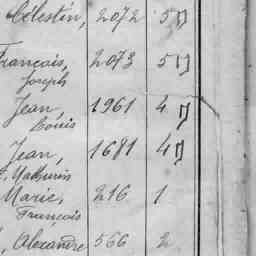 Célestin, 2072 5
François, 2073 5
Joseph
Jean, 1961 4
Louis
Jean, 1681 4
Mathurin
Marie, 216 1
François
, Alexandre 566 2